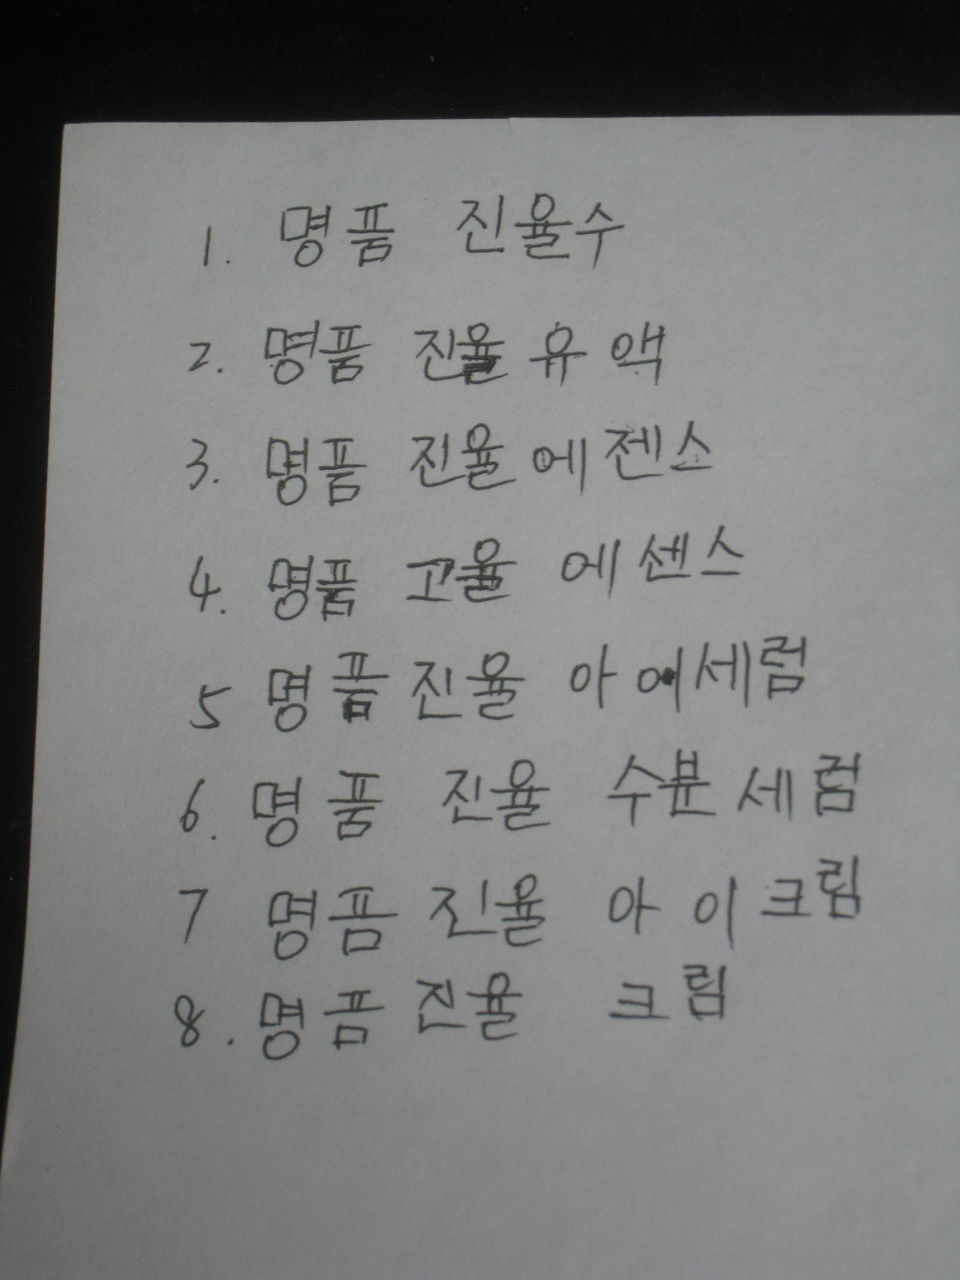 1. 명품 진율수
2. 명품 진율유액
3. 명품 진율에젠스
4. 명품 고율 에센스
5 명품진율 아이세럼
6. 명품 진율 수분세럼
7 명품 진율 아이크림
8. 명품진율 크림